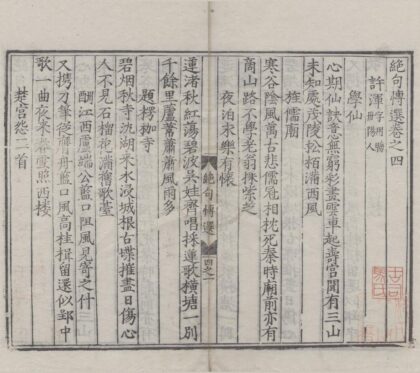 絕句博選卷之四
許渾字用晦丹陽人
學仙
心期仙訣意無窮彩畫雲車起壽宮聞有三山
未知處茂陵松柏滿西風
旌儒廟
寒谷陰風萬古悲儒冠相枕死秦時廟前亦有
商山路不學老翁採紫芝
夜泊永樂有懷
蓮渚秋紅蕩碧波吳娃齊唱採蓮歌橫塘一別
絕句博選
四之一
千餘里蘆葦蕭蕭風雨多
題楞伽寺
碧烟秋寺泛湖來水浸城根古堞摧盡日傷心
人不見石榴花滿舊歌臺
酬江西盧端公藍口阻風見寄之什
又攜刀筆從膺舟藍口風高桂楫留還似郢中
歌一曲夜來春雪照西樓
楚宮怨二首